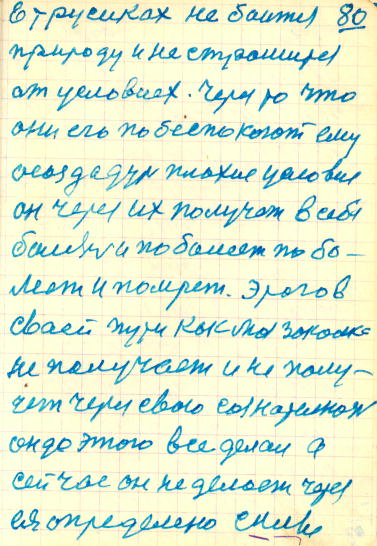 в трусиках не боится 80
природу и не страшится
от условиех. Через то что
они его побеспокоют ему
создадут плохие условия
он через их получет в себя
болезнь и поболеет по бо-
леет и помрет. Этого в
своей пути как мы закалке
не получает и не полу-
чет через свою сознательнож
он до этого все делал а
сейчас он не делает через
ея определено